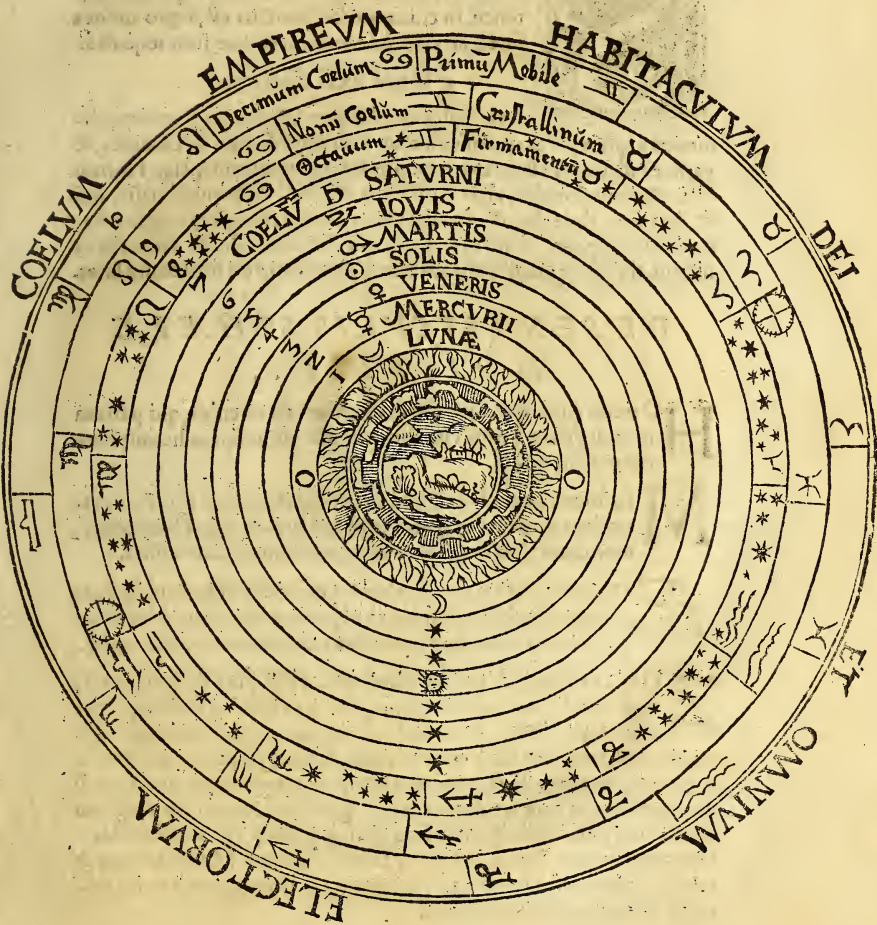 COELVM EMPIREVM HABITACVLVM DEI ET OMNIVM ELECTORVM
Decimum Coelum ♋ Primū Mobile ♊
Nonū Coelum ♊ Cristallinum ♉
Octauum ♊ Firmamentū ♉
7 COELV̄ ♄ SATVRNI
6 ♃ IOVIS
5 ♂ MARTIS
4 ☉ SOLIS
3 ♀ VENERIS
2 ☿ MERCVRII
1 ☽ LVNÆ